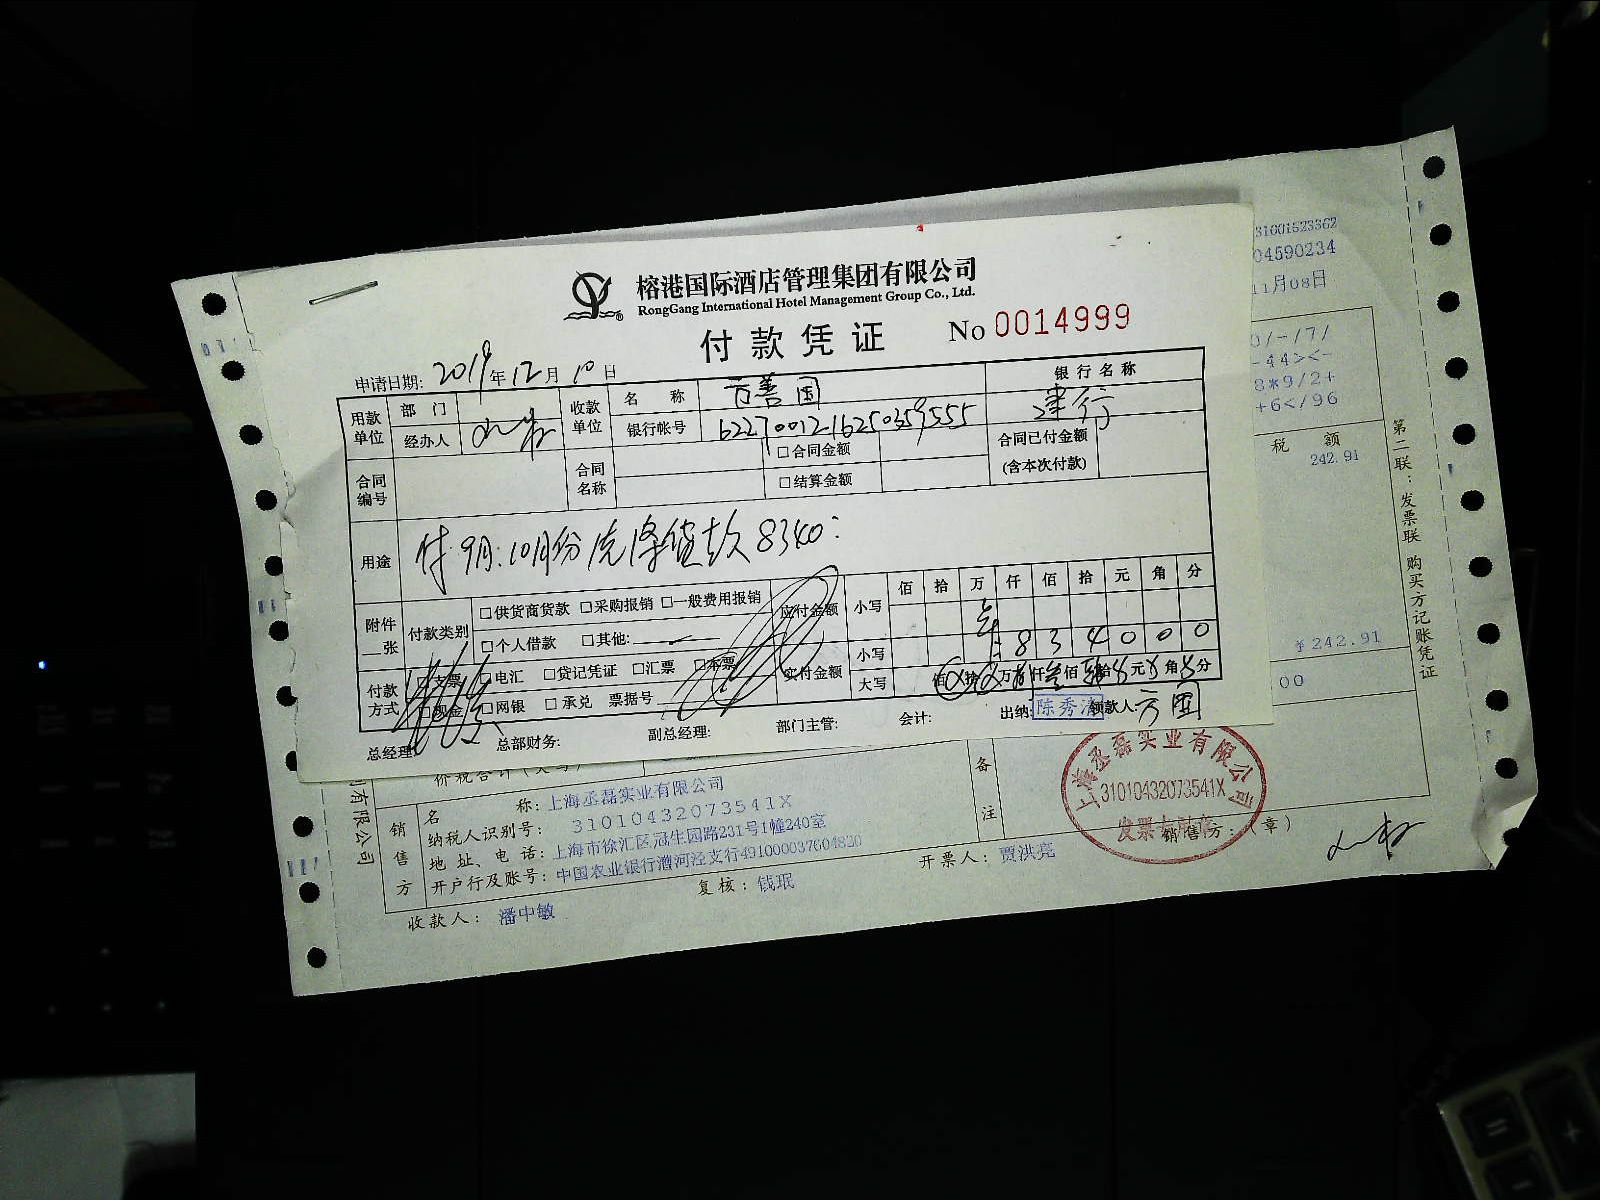 榕港国际酒店管理集团有限公司
RongGang International Hotel Management Group Co., Ltd.
付款凭证 No 0014999
申请日期: 2019年12月10日
用款单位 部门 收款单位 名称 方善国 银行名称
经办人 银行帐号 6227001216250359555 建行
合同编号 合同名称 □合同金额 合同已付金额
□结算金额 (含本次付款)
用途 付9月.10月份洗涤货款8340:
附件 __张 付款类别 □供货商货款 □采购报销 □一般费用报销 应付金额 小写 佰 拾 万 仟 佰 拾 元 角 分
□个人借款 □其他: 小写 ¥ 8 3 4 0 0 0
付款方式 □支票 □电汇 □贷记凭证 □汇票 □本票 实付金额 大写 佰 拾 万 仟 叁 佰 拾 元 角 分
□现金 □网银 □承兑 票据号
总经理: 总部财务: 副总经理: 部门主管: 会计: 出纳: 陈秀清 领款人: 方国
31001523362
04590234
11月08日
0/-/7/
-44><-
8*9/2+
+6</96
税 额
242.91
¥242.91
00
第二联：发票联 购买方记账凭证
价税合计(大写)
销售方
名 称: 上海丞磊实业有限公司
纳税人识别号: 31010432073541X
地址、电话: 上海市徐汇区冠生园路231号1幢240室
开户行及账号: 中国农业银行漕河泾支行491000037604820
收款人: 潘中敏 复核: 钱珉 开票人: 贾洪亮 销售方:(章)
备注
上海丞磊实业有限公司
31010432073541X
发票专用章
司有限公司